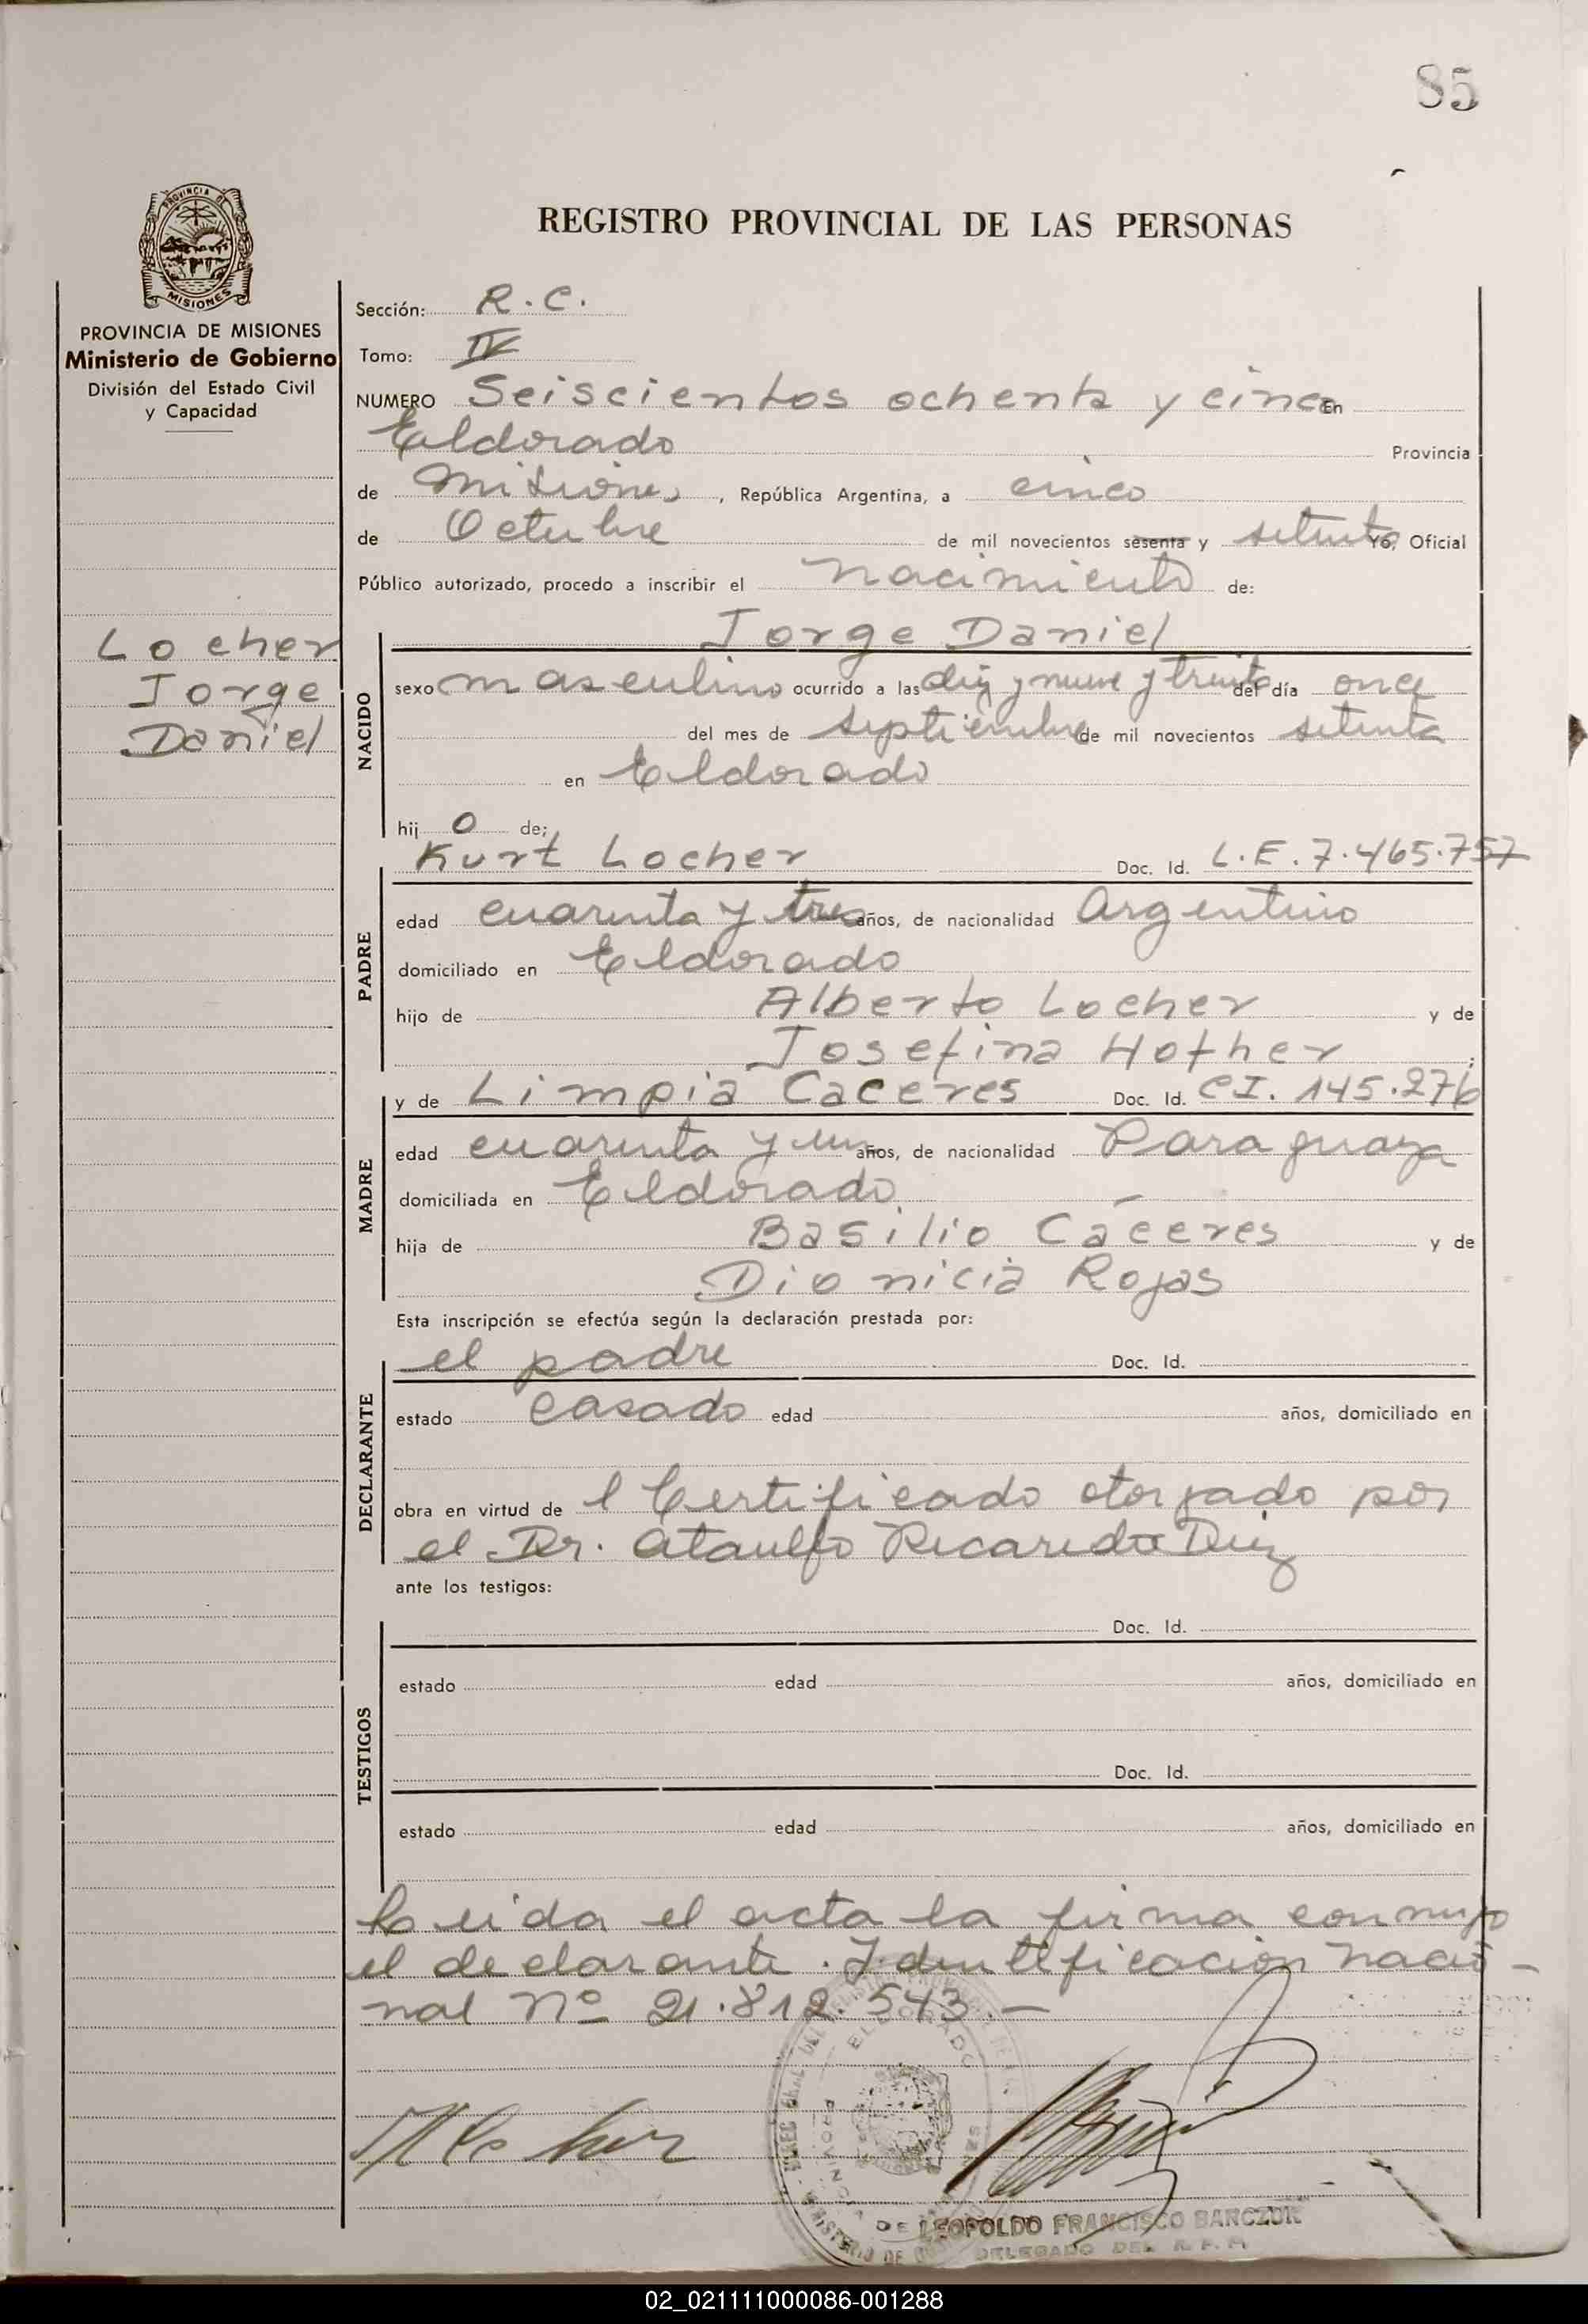 85
REGISTRO PROVINCIAL DE LAS PERSONAS
PROVINCIA DE MISIONES
PROVINCIA DE MISIONES
Ministerio de Gobierno
División del Estado Civil
y Capacidad
Locher
Jorge
Daniel
Sección: R.C.
Tomo: IV
NUMERO Seiscientos ochenta y cinco En
Eldorado Provincia
de Misiones, República Argentina, a cinco
de Octubre de mil novecientos sesenta y setenta Yo, Oficial
Público autorizado, procedo a inscribir el nacimiento de:
Jorge Daniel
NACIDO
sexo masculino ocurrido a las diez y nueve y treinta del día once
del mes de septiembre de mil novecientos setenta
en Eldorado
hij o de:
Kurt Locher Doc. Id. L.E. 7.465.757
PADRE
edad cuarenta y tres años, de nacionalidad Argentino
domiciliado en Eldorado
hijo de Alberto Locher y de
Josefina Hother ;
y de Limpia Caceres Doc. Id. CI. 145.276
MADRE
edad cuarenta y un años, de nacionalidad Paraguaya
domiciliada en Eldorado
hija de Basilio Cáceres y de
Dionicia Rojas
Esta inscripción se efectúa según la declaración prestada por:
el padre Doc. Id.
DECLARANTE
estado casado edad años, domiciliado en
obra en virtud de l Certificado otorgado por
el Dr. Ataulfo Ricaredo Diez
ante los testigos:
Doc. Id.
TESTIGOS
estado edad años, domiciliado en
Doc. Id.
estado edad años, domiciliado en
Leida el acta la firma conmigo
el declarante. Identificacion nacio-
nal Nº 21.812.543.-
ELDORADO
LEOPOLDO FRANCISCO BANCZUK
DELEGADO DEL R. P. P.
02_021111000086-001288